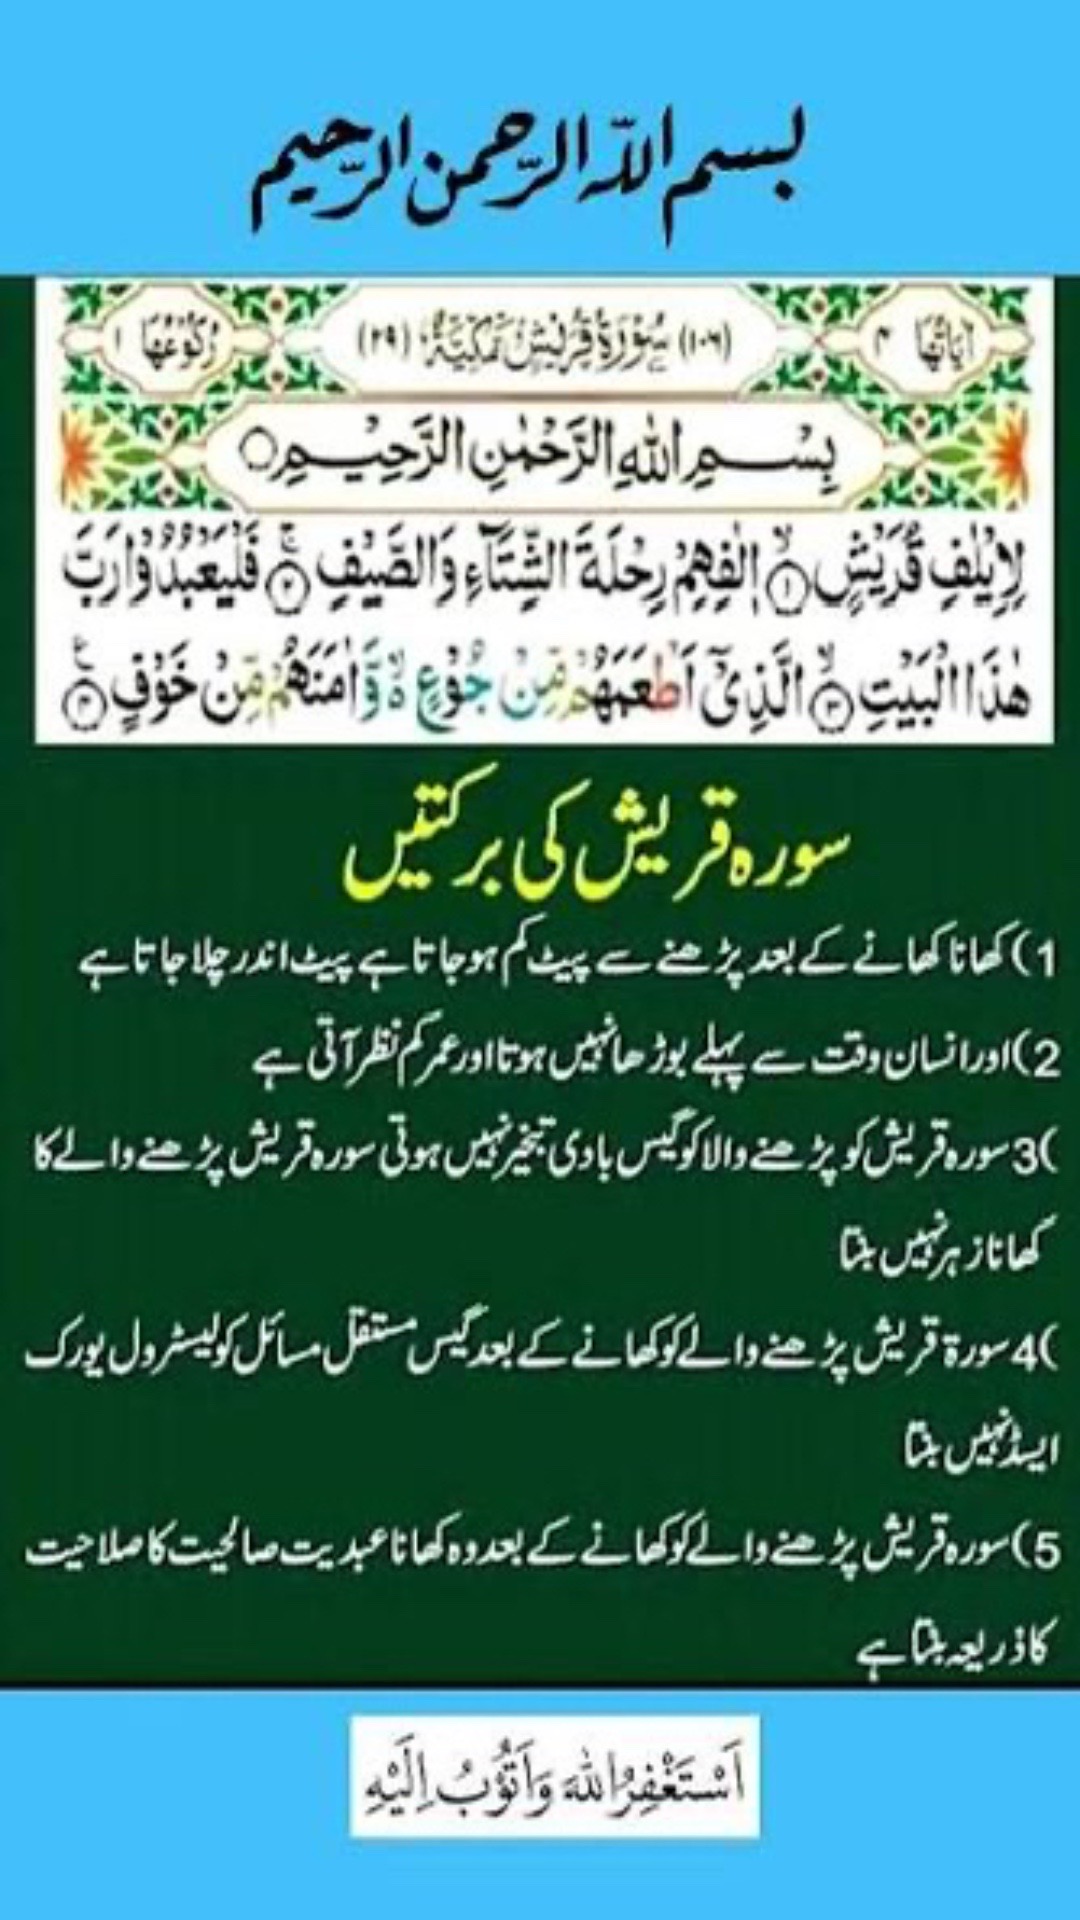 بسم اللہ الرّحمن الرّحیم
اٰیَاتُهَا ۴
(۱۰۶) سُوْرَةُ قُرَيْشٍ مَّكِّيَّةٌ (۲۹)
رُكُوْعُهَا ۱
بِسْمِ اللّٰهِ الرَّحْمٰنِ الرَّحِيْمِ
لِاِيْلٰفِ قُرَيْشٍۙ۝۱ اٖلٰفِهِمْ رِحْلَةَ الشِّتَآءِ وَالصَّيْفِۚ۝۲ فَلْيَعْبُدُوْا رَبَّ
هٰذَا الْبَيْتِۙ۝۳ الَّذِيْۤ اَطْعَمَهُمْ مِّنْ جُوْعٍ ۙ۬ وَّاٰمَنَهُمْ مِّنْ خَوْفٍ۠۝۴
سورہ قریش کی برکتیں
1) کھانا کھانے کے بعد پڑھنے سے پیٹ کم ہو جاتا ہے پیٹ اندر چلا جاتا ہے
2) اور انسان وقت سے پہلے بوڑھا نہیں ہوتا اور عمر کم نظر آتی ہے
3) سورہ قریش کو پڑھنے والا کو گیس بادی تبخیر نہیں ہوتی سورہ قریش پڑھنے والے کا
کھانا زہر نہیں بنتا
4) سورۃ قریش پڑھنے والے کو کھانے کے بعد گیس مستقل مسائل کولیسٹرول یورک
ایسڈ نہیں بنتا
5) سورہ قریش پڑھنے والے کو کھانے کے بعد وہ کھانا عبدیت صالحیت کا صلاحیت
کا ذریعہ بنتا ہے
اَسْتَغْفِرُ اللّٰهَ وَاَتُوْبُ اِلَيْهِ